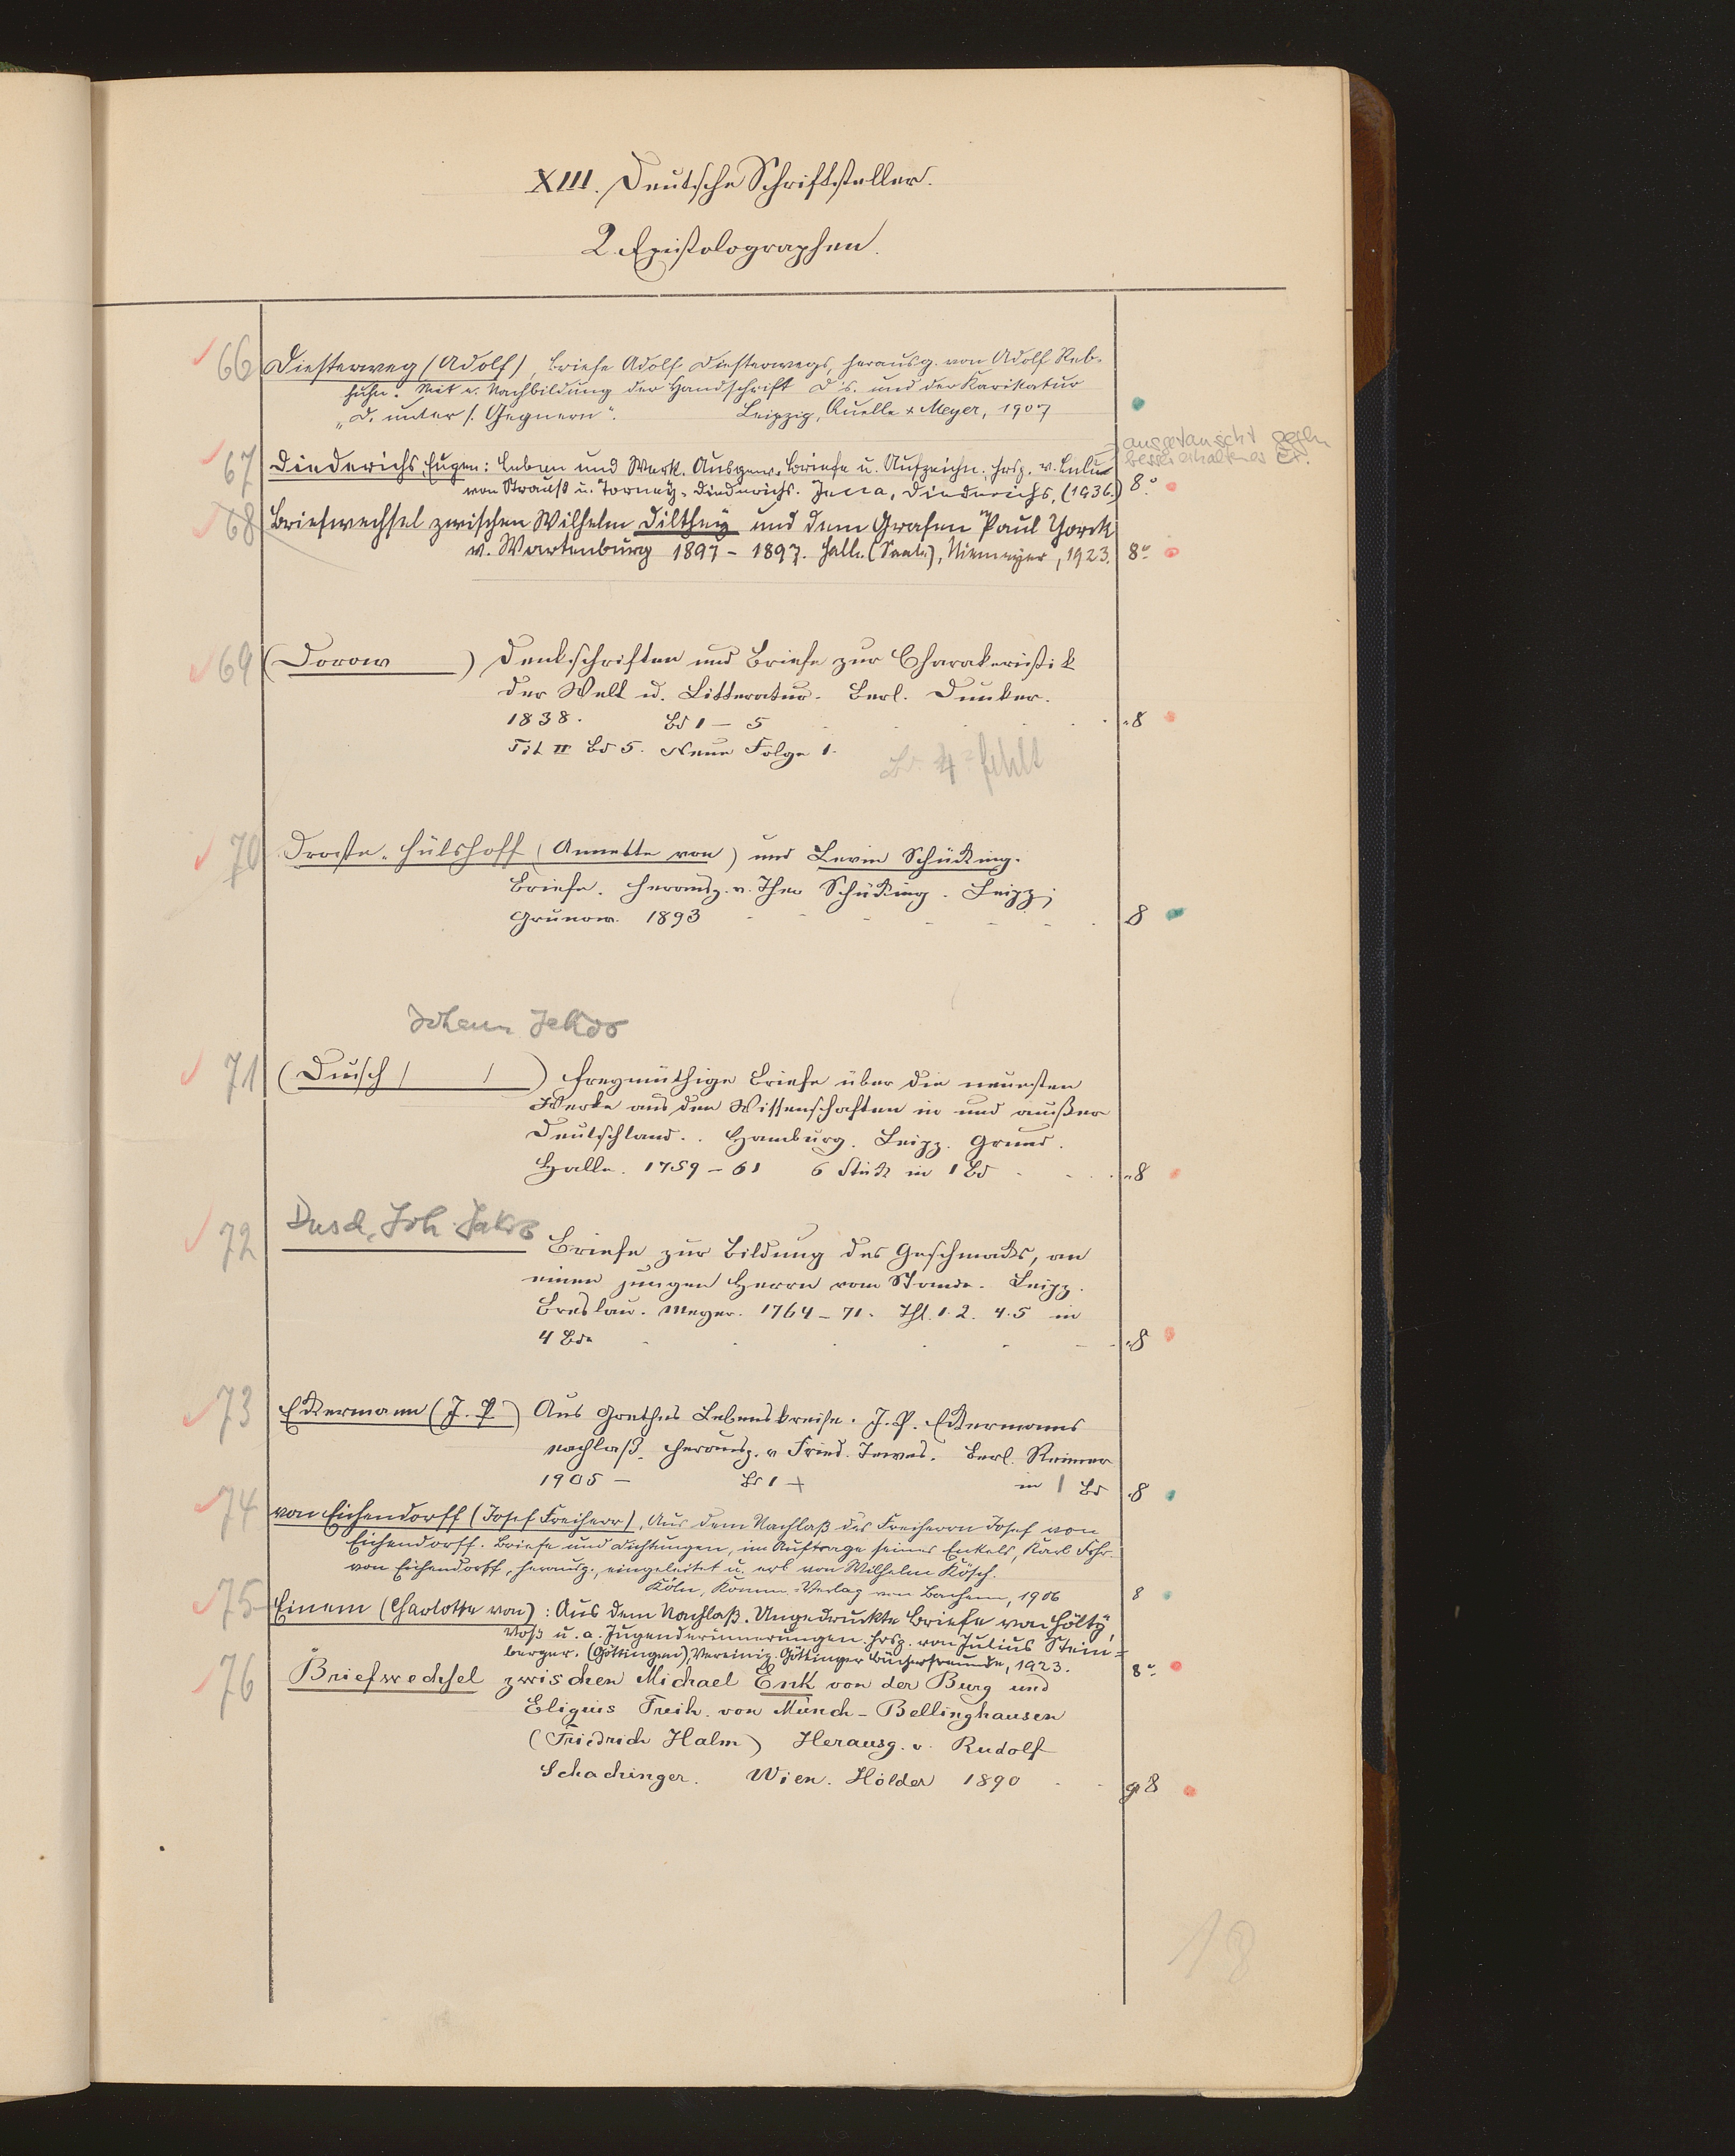 XIII. Deutsche Schriftsteller.
2. Epistolographen.
66 Diesterweg (Adolf), Briefe Adolf Diesterwegs, herausg. von Adolf Reb-
huhn. Mit e. Nachbildung der Handschrift D's. und der Karikatur
„D. unter s. Gegnern“. Leipzig, Quelle & Meyer, 1907
ausgetauscht gegen
besser erhaltenes Ex.
67 Diederichs, Eugen: Leben und Werk. Ausgew. Briefe u. Aufzeichn. hrsg. v. Lulu
von Strauß u. Torney-Diederichs. Jena, Diederichs, (1936.) 8°
68 Briefwechsel zwischen Wilhelm Dilthey und dem Grafen Paul Yorck
v. Wartenburg 1897 - 1897. Halle (Saale), Niemeyer, 1923. 8°
69 (Dorow ) Denkschriften und Briefe zur Charakteristik
der Welt u. Litteratur. Berl. Dunker.
1838. Bd 1 - 5 8
Tit II Bd 5. Neue Folge 1.
Bd. 4 = fehlt
70 Droste-Hülshoff (Annette von) und Levin Schücking.
Briefe. Herausg. v. Theo Schücking. Leipz;
Grunow. 1893 8
Johann Jakob
71 (Dusch / / ) freymüthige Briefe über die neuesten
Werke aus den Wissenschaften in und außer
Deutschland. . Hamburg. Leipz. Grund.
Halle. 1759 - 61 6 Stück in 1 Bd 8
72 Dusch, Joh. Jakob Briefe zur Bildung des Geschmacks, an
einen jungen Herrn vom Stande. Leipz.
Breslau. Meyer. 1764 - 71. Thl. 1. 2. 4. 5 in
4 Bde 8
73 Eckermann (J. P.) Aus Goethes Lebenskreise. J. P. Eckermanns
Nachlaß. Herausg. v Fried. Tewes. Berl. Reimer
1905 - Bd 1 + in 1 Bd 8
74 von Eichendorff (Josef Freiherr), Aus dem Nachlaß des Freiherrn Josef von
Eichendorff. Briefe und Dichtungen, im Auftrage seines Enkels, Karl Frhr.
von Eichendorff, herausg., eingeleitet u. erl. von Wilhelm Kosch.
Köln, Komm.-Verlag von Bachem, 1906 8
75 Einem (Charlotte von): Aus dem Nachlaß. Ungedruckte Briefe von Hölty,
Voß u. a. Jugenderinnerungen. Hrsg. von Julius Stein-
berger. (Göttingen), Vereinig. Göttinger Bücherfreunde, 1923. 8°
76 Briefwechsel zwischen Michael Enk von der Burg und
Eligius Freih. von Münch - Bellinghausen
(Friedrich Halm) Herausg. v. Rudolf
Schachinger. Wien. Hölder 1890 gr 8
18